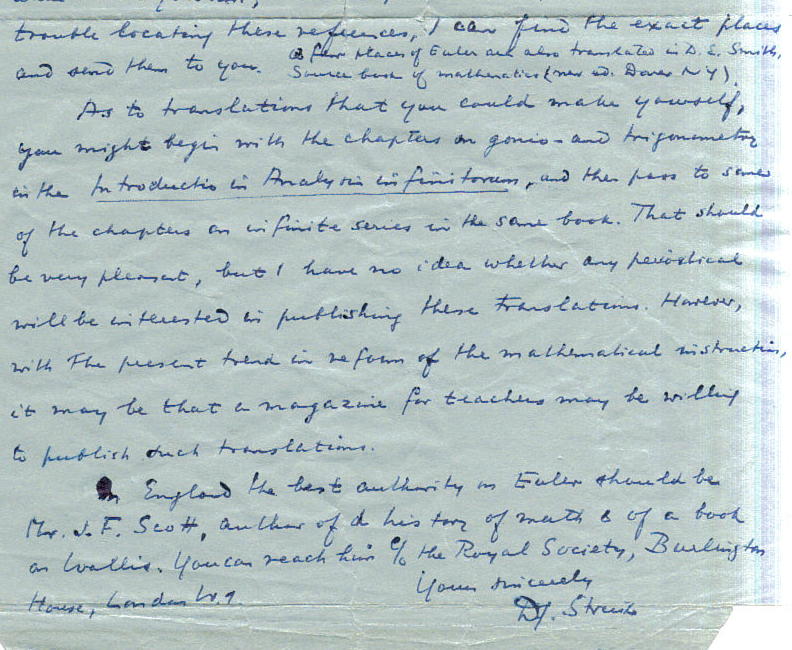 trouble locating these references, I can find the exact places
and send them to you. a few places of Euler are also translated in D. E. Smith,
Source book of mathematics (new ed. Dover N Y).
As to translations that you could make yourself,
you might begin with the chapters on gonio- and trigonometry
in the Introductio in Analysin infinitorum, and then pass to some
of the chapters on infinite series in the same book. That should
be very pleasant, but I have no idea whether any periodical
will be interested in publishing these translations. However,
with the present trend in reform of the mathematical instruction,
it may be that a magazine for teachers may be willing
to publish such translations.
In England the best authority on Euler should be
Mr. J. F. Scott, author of a history of math & of a book
on Wallis. You can reach him c/o the Royal Society, Burlington
House, London W. 1.
Yours sincerely
D.J. Struik